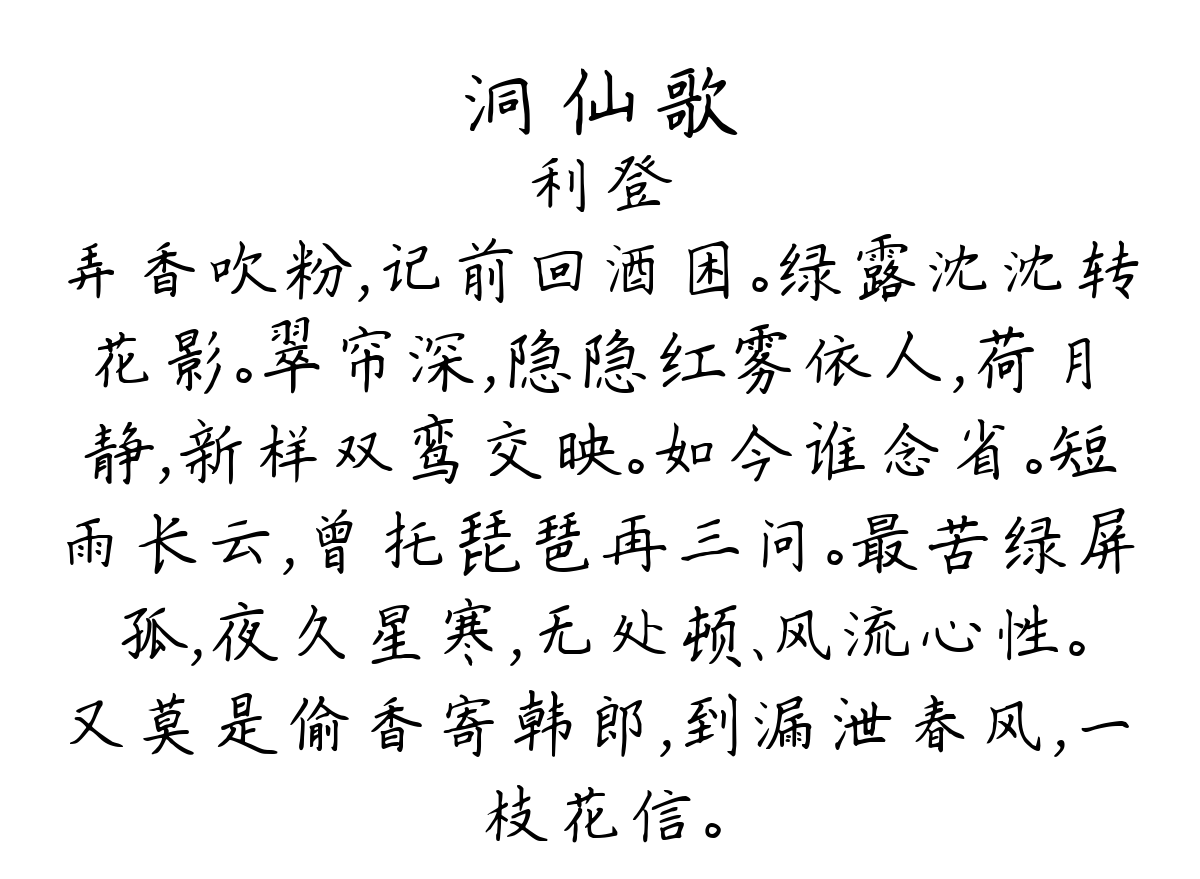 洞仙歌
利登
弄香吹粉,记前回酒困。绿露沈沈转
花影。翠帘深,隐隐红雾依人,荷月
静,新样双鸾交映。如今谁念省。短
雨长云,曾托琵琶再三问。最苦绿屏
孤,夜久星寒,无处顿、风流心性。
又莫是偷香寄韩郎,到漏泄春风,一
枝花信。